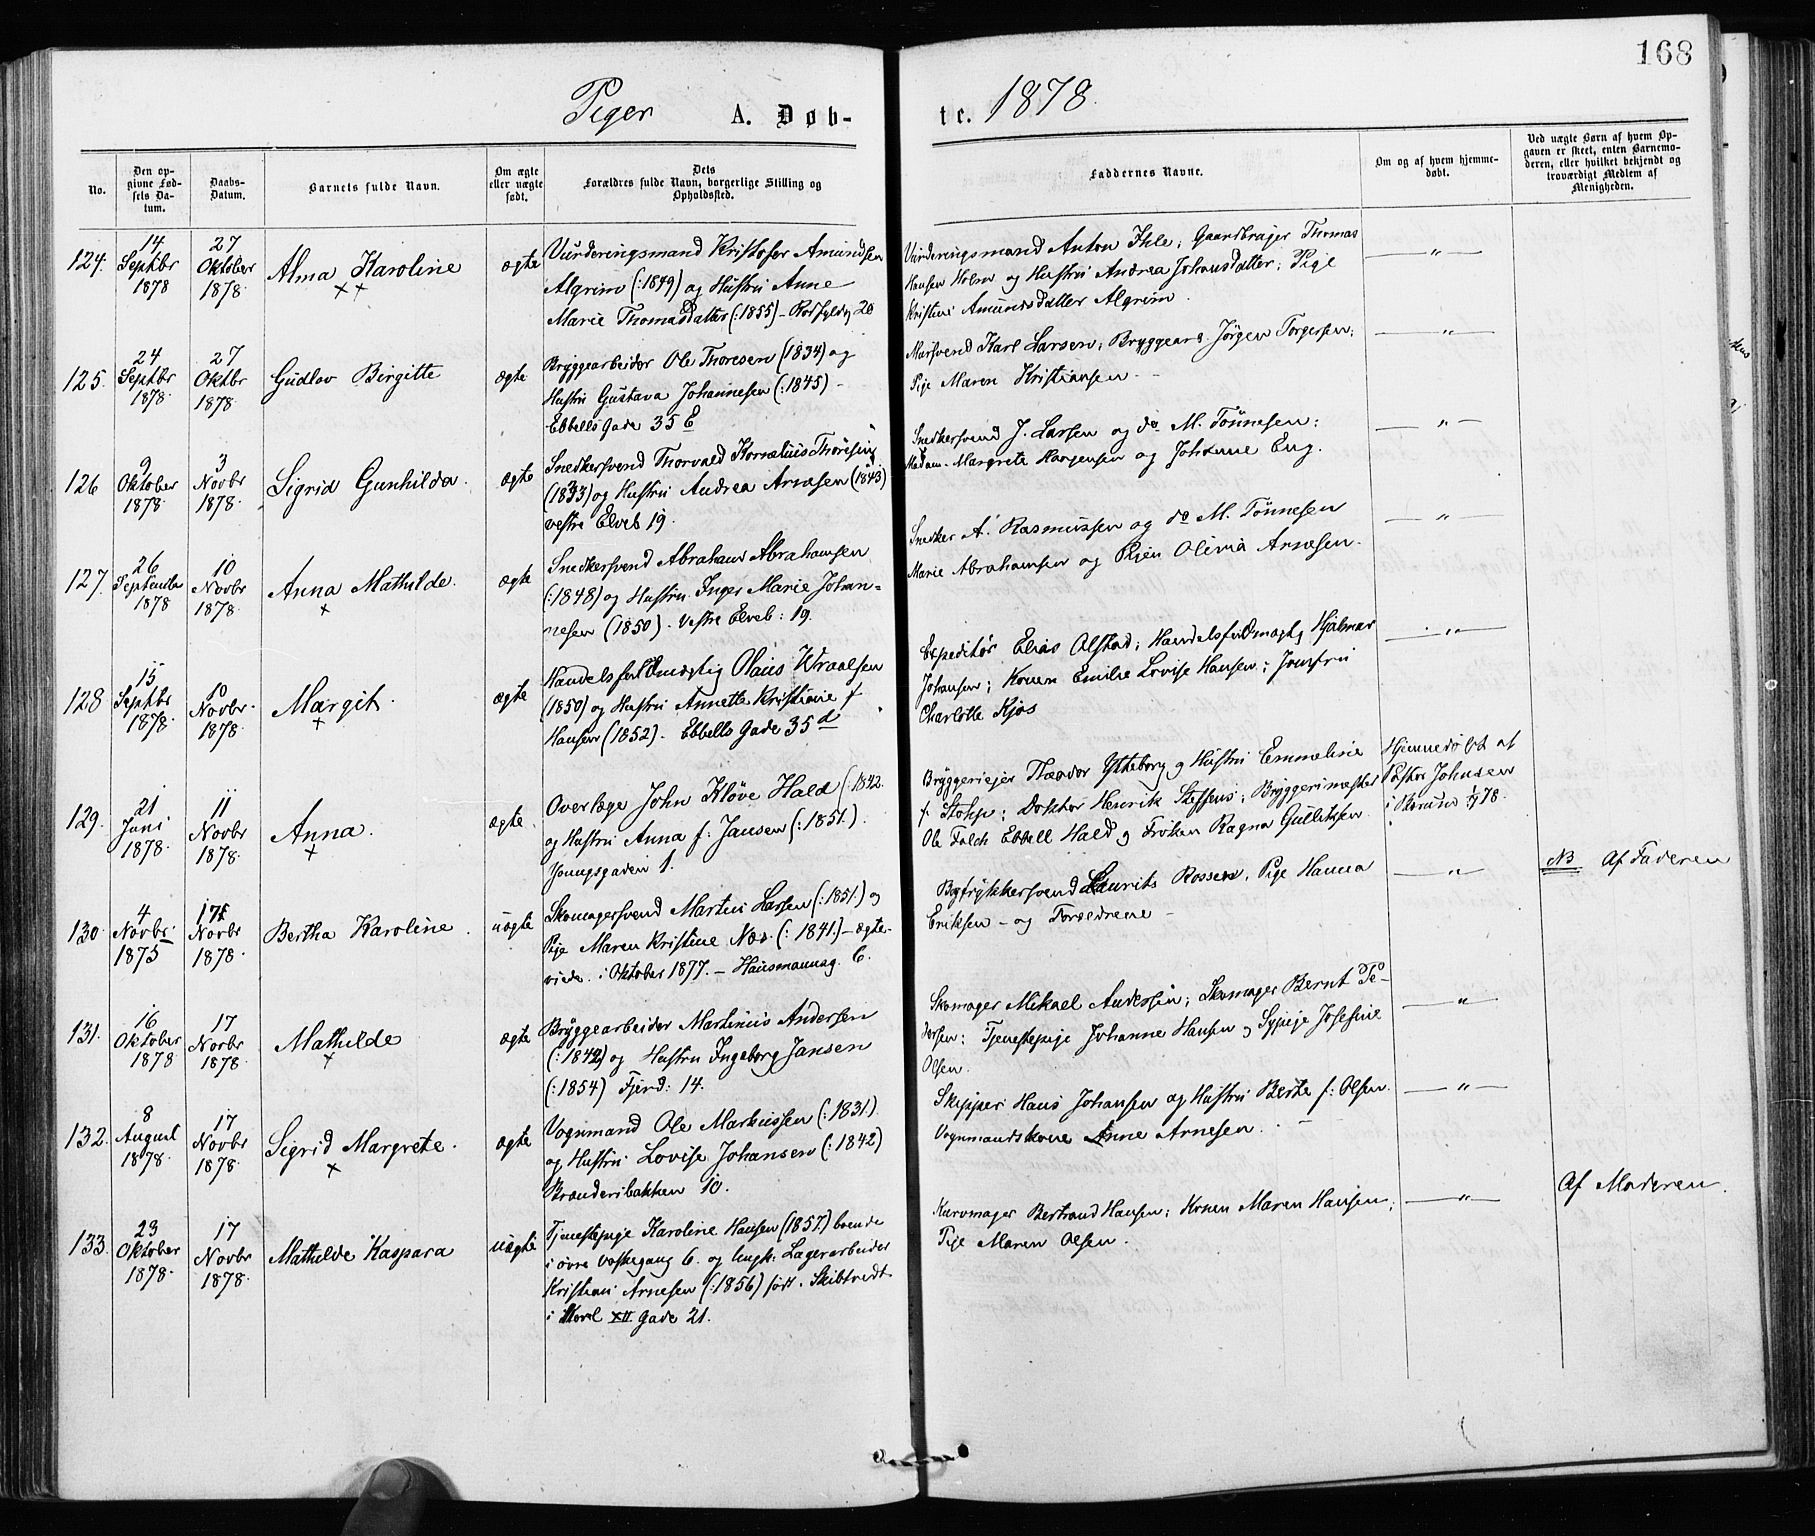 168
Piger A. Døb-
te. 1878.
No.
Den op-
givne Fød-
sels Da-
tum.
Daabs-
Datum.
Barnets fulde Navn.
Om ægte
eller uægte
født.
Dets
Forældres fulde Navn, borgerlige Stilling og
Opholdssted.
Faddernes Navne.
Om og af hvem hjemme-
døbt.
Ved uægte Børn af hvem Op-
gaven er skeet, enten Barnemo-
deren, eller hvilket bekjendt og
troværdigt Medlem af
Menigheden.
124.
14
Septbr
1878
27
Oktober
1878.
Alma Karoline
××
ægte
Vurderingsmand Kristofer Amundsen
Algrim (:1849) og Hustru Anne
Marie Thomasdatter (:1855) - Rodfyldg 20
Vurderingsmand Anton Ihle; Gaardbruger Thomas
Hansen Holm og Hustru Andrea Johansdatter; Pige
Kristine Amundsdatter Algrim.
— " —
125.
24
Septbr
1878.
27
Oktbr
1878.
Gudlov Birgitte
ægte
Bryggearbeider Ole Thoresen (1834) og
Hustru Gustava Johannesen (:1845) -
Ebbells Gade 35 E
Mursvend Karl Larsen; Bryggear. Jörgen Torgersen;
Pige Maren Kristiansen - -
— " —
126
9
Oktober
1878.
3
Novbr
1878.
Sigrid Gunhilda.
ægte
Snedkersvend Thorvald Kornelius Thoresen
(1833) og Hustru Andrea Arnesen (1843)
vestre Elveb 19.
Snedkersvend J. Larsen og do M. Tönnesen;
Madam Margrete Haagensen og Johanne Eng.
— " —
127.
26
Septembr
1878
10
Novbr
1878.
Anna Mathilde.
×
ægte
Snedkersvend Abraham Abrahamsen
(:1848) og Hustru Inger Marie Johan-
nesen (1850). Vestre Elveb: 19.
Snedker A. Rasmussen og do M. Tönnesen
Marie Abrahamsen og Pigen Olivia Arnesen.
— " —
128
15
Septbr
1878.
10
Novbr.
1878.
Margit.
×
ægte
Handelsfuldmægtig Olaus Wraalsen
(1850) og Hustru Annette Kristiane f
Hansen (1852). Ebbells Gade 35 d
Expeditör Elias Olstad; Handelsfuldmægtg Hjalmar
Johansen; Konen Emilie Lovise Hansen; Jomfru
Charlotte Kjos
— " —
129.
21
Juni
1878.
11
Novbr
1878.
Anna.
×
ægte.
Overlæge John Klöve Hald (:1842.
og Hustru Anna f: Jansen (:1851.)
Youngsgaden 1.
Bryggerieier Theodor Ytteborg g Hustru Emmeline
f Stohp; Doktor Henrik Steffens; Bryggerimester
Ole Falch Ebbell Hald g Fröken Ragna Gulliksen
Hjemmedöbt af
Pastor Johnsen
i Horund 1/7 78.
130.
4
Novbr.
1875
17
Novbr
1878.
Bertha Karoline.
uægte
Skomagersvend Martin Larsen (:1851.) og
Pige Maren Kristine Næs. (:1841.) - ægte-
viede. i Oktober 1877. - Hausmannsg. 6.
Bogtrykkersvend Laurits Rossen, Pige Hanna
Eriksen - og Forældrene -
— " —
NB Af Faderen
131.
16
Oktober
1878
17
Novbr
1878.
Mathilde
×
ægte
Bryggearbeider Martinius Andersen
(:1842) og Hustru Ingeborg Jansen
(:1854) Fjerd: 14.
Skomager Mikael Andersen; Skomager Bernt Pe-
dersen; Tjenestepige Johanne Hansen g Sypige Josefine
Olsen.
— " —
132.
8
August
1878.
17
Novbr
1878.
Sigrid Margrete.
×
ægte
Vognmand Ole Markussen (:1831.)
og Hustru Lovise Johansen (:1842)
Brænderibakken 10.
Skipper Hans Johansen og Hustru Berte f: Olsen.
Vognmandskone Anne Arnesen. -
— " —
133.
23
Oktober
1878.
17
Novbr
1878.
Mathilde Kaspara
uægte
Tjenestepige Karoline Hansen (1857.) boende
i övre Voldegang 6. og Ungk: Lagerarbeider
Kristian Arnesen (:1856) föd. Skibtvedt
i Korol XII Gade 21.
Kurvmager Bertrand Hansen; Konen Maren Hansen;
Pige Maren Olsen.
— " —
Af Moderen.